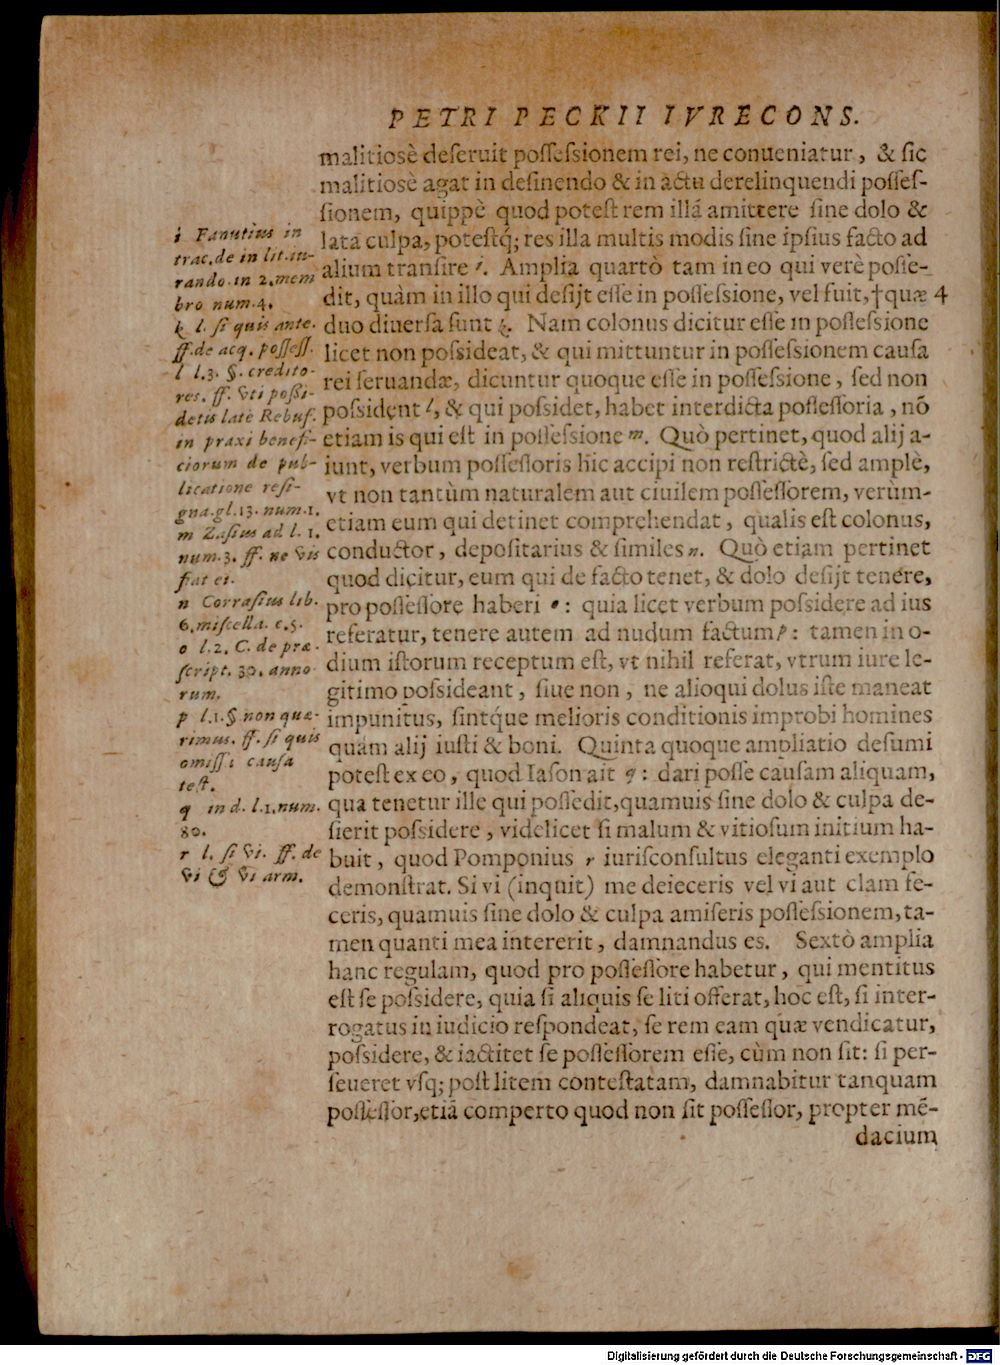 PETRI PECKII IVRECONS.
malitiosè deseruit possessionem rei, ne conueniatur, & sic
malitiosè agat in desinendo & in actu derelinquendi posses-
sionem, quippè quod potest rem illã amittere sine dolo &
lata culpa, potestq́; res illa multis modis sine ipsius facto ad
alium transire i. Amplia quartò tam in eo qui verè posse-
dit, quàm in illo qui desijt esse in possessione, vel fuit,†quæ 4
duo diuersa sunt k. Nam colonus dicitur esse in possessione
licet non possideat, & qui mittuntur in possessionem causa
rei seruandæ, dicuntur quoque esse in possessione, sed non
possident l, & qui possidet, habet interdicta possessoria, nõ
etiam is qui est in possessione m. Quò pertinet, quod alij a-
iunt, verbum possessoris hic accipi non restrictè, sed amplè,
vt non tantùm naturalem aut ciuilem possessorem, verùm-
etiam eum qui detinet comprehendat, qualis est colonus,
conductor, depositarius & similes n. Quò etiam pertinet
quod dicitur, eum qui de facto tenet, & dolo desijt tenere,
pro possessore haberi o: quia licet verbum possidere ad ius
referatur, tenere autem ad nudum factum p: tamen in o-
dium istorum receptum est, vt nihil referat, vtrum iure le-
gitimo possideant, siue non, ne alioqui dolus iste maneat
impunitus, sintq́ue melioris conditionis improbi homines
quàm alij iusti & boni. Quinta quoque ampliatio desumi
potest ex eo, quod Iason ait q: dari posse causam aliquam,
qua tenetur ille qui possedit, quamuis sine dolo & culpa de-
sierit possidere, videlicet si malum & vitiosum initium ha-
buit, quod Pomponius r iurisconsultus eleganti exemplo
demonstrat. Si vi (inquit) me deieceris vel vi aut clam fe-
ceris, quamuis sine dolo & culpa amiseris possessionem, ta-
men quanti mea intererit, damnandus es. Sextò amplia
hanc regulam, quod pro possessore habetur, qui mentitus
est se possidere, quia si aliquis se liti offerat, hoc est, si inter-
rogatus in iudicio respondeat, se rem eam quæ vendicatur,
possidere, & iactitet se possessorem esse, cùm non sit: si per-
seueret vsq; post litem contestatam, damnabitur tanquam
possessor, etiã comperto quod non sit possessor, propter mẽ-
dacium
i Fanutius in
trac. de in lit. iu-
rando. in 2. mem
bro num. 4.
k l. si quis ante.
ff. de acq. possess.
l l. 3. §. credito-
res. ff. vti possi-
detis latè Rebuf.
in praxi benefi-
ciorum de pub-
licatione resi-
gna. gl. 13. num. 1.
m Zasius ad l. 1.
num. 3. ff. ne vis
fiat ei.
n Corrasius lib.
6. miscella. c. 5.
o l. 2. C. de præ-
script. 30. anno
rum.
p l. 1. § non quæ-
rimus. ff. si quis
omissa causa
test.
q in d. l. 1. num.
80.
r l. si vi. ff. de
vi & vi arm.
Digitalisierung gefördert durch die Deutsche Forschungsgemeinschaft - DFG